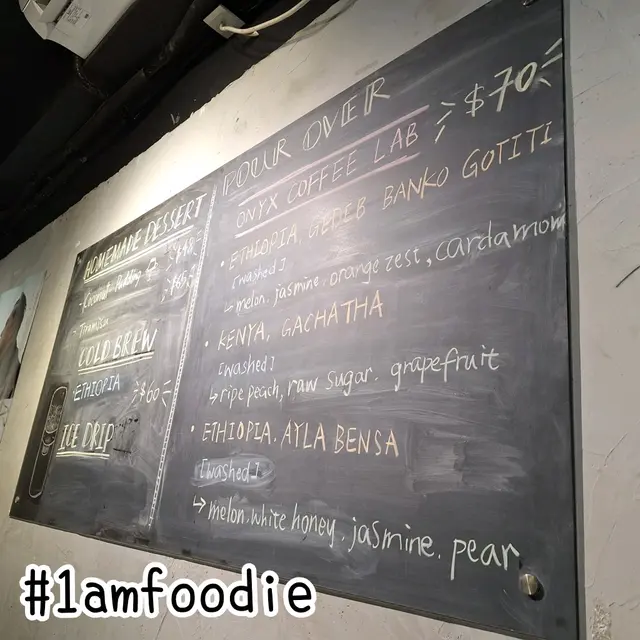 HOMEMADE DESSERT
- Coconut Pudding
- Tiramisu
COLD BREW
· ETHIOPIA $60
ICE DRIP
POUR OVER $70
ONYX COFFEE LAB
· ETHIOPIA, GEDEB BANKO GOTITI
[washed]
↳ melon, jasmine, orange zest, cardamom
· KENYA, GACHATHA
[washed]
↳ ripe peach, raw sugar, grapefruit
· ETHIOPIA, AYLA BENSA
[washed]
↳ melon, white honey, jasmine, pear
#1amfoodie